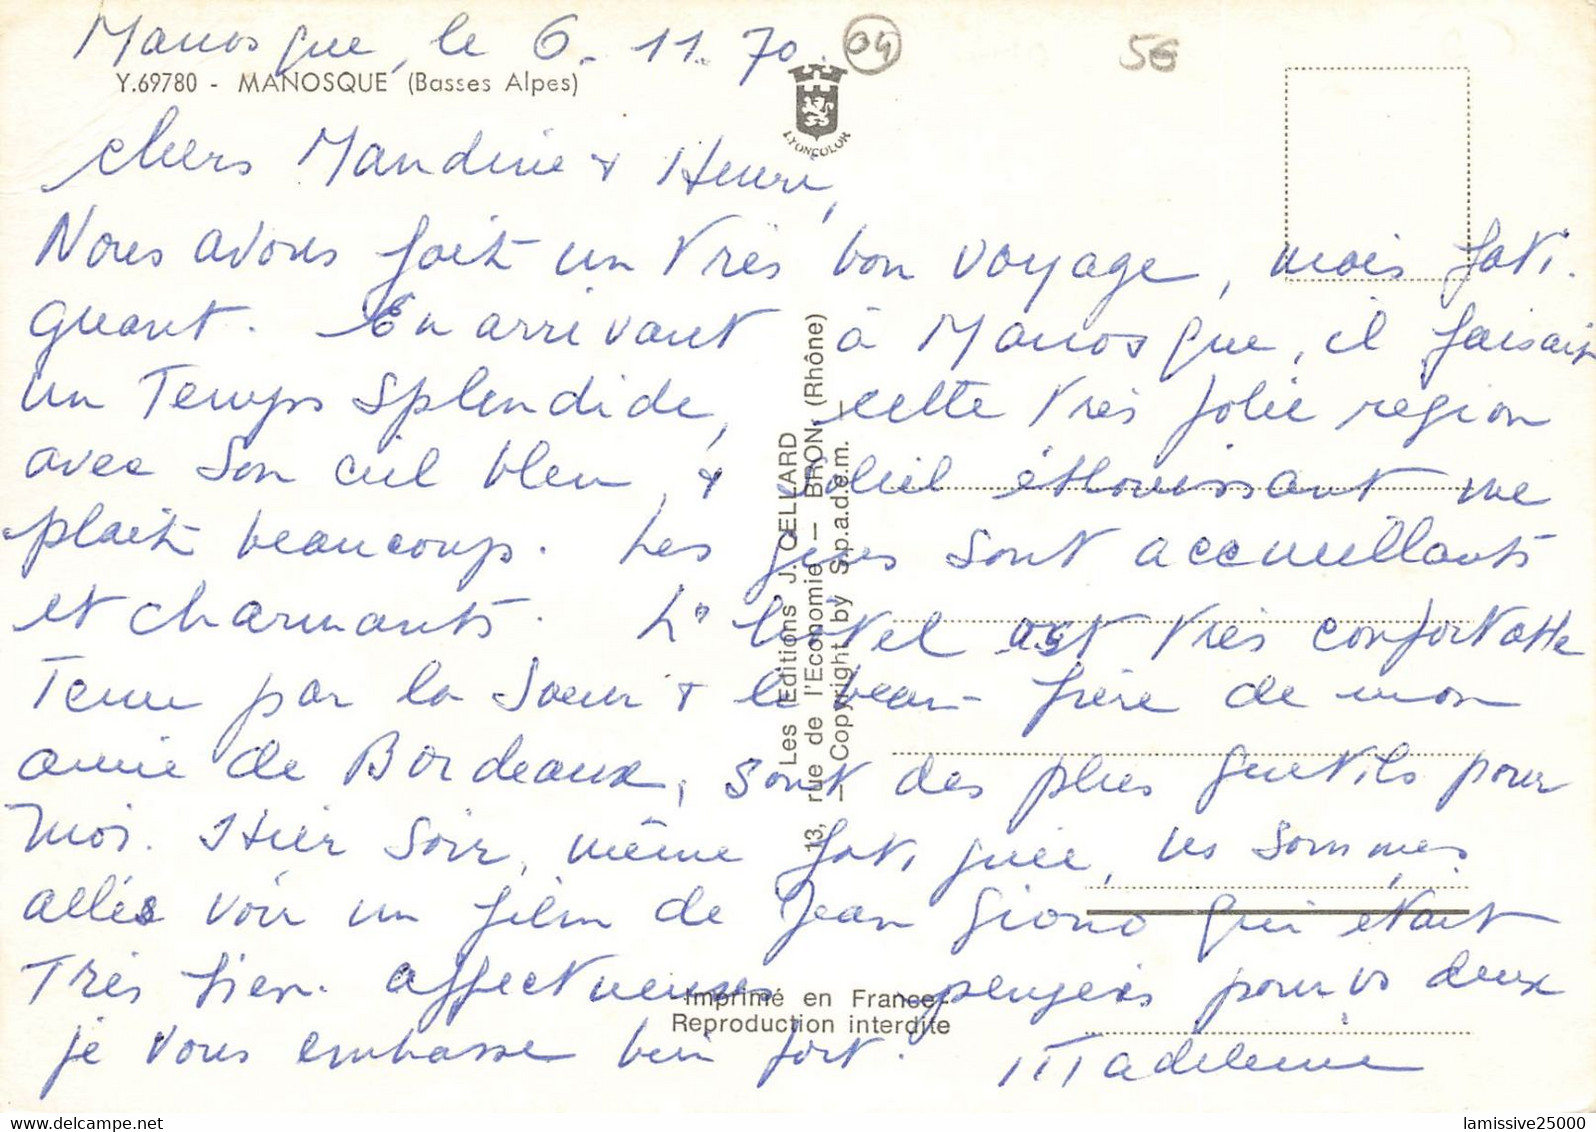 Manosque, le 6.11.70.
04
5€
Y.69780 - MANOSQUE (Basses Alpes)
LYONCOLOR
chers Mandine + Henri,
Nous avons fait un très bon voyage, mais fati.
guant. En arrivant à Manosque, il faisait
un Temps Splendide, cette très jolie region
avec Son ciel bleu, + soleil éblouissant me
plait beaucoup. Les gens sont accueillants
et charmants. L'hotel est très confortable
Tenu par la Soeur + le beau-frère de mon
amie de Bordeaux, sont des plus gentils pour
moi. Hier Soir, même fatiguée, ns sommes
allés voir un film de Jean Giono qui était
Très bien. affectueuses pensées pour vs deux
je vous embrasse bien fort. Madeleine
Les Editions J. CELLARD
13, rue de l'Economie — BRON (Rhône)
— Copyright by S.p.a.d.e.m. —
Imprimé en France
Reproduction interdite
lamissive25000